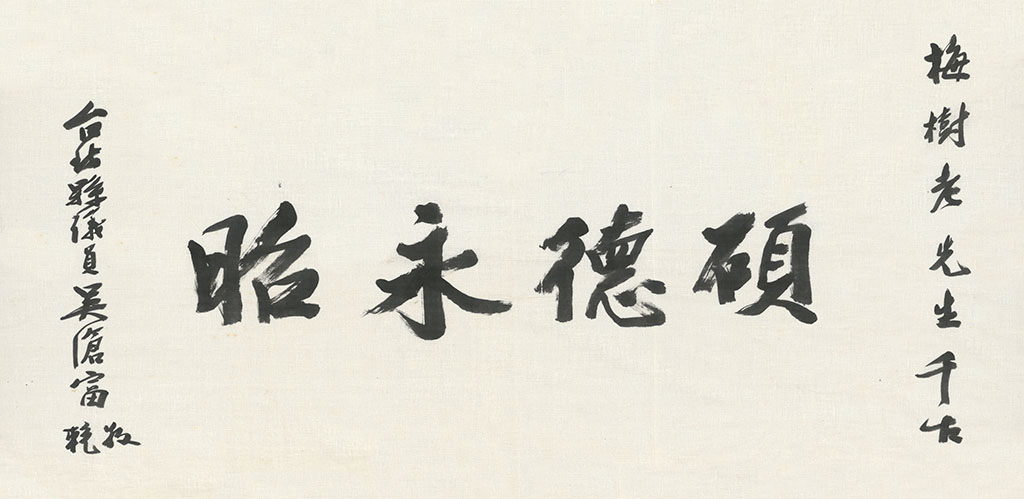 梅樹老先生千古
碩德永昭
台北縣議員吳滄富敬輓